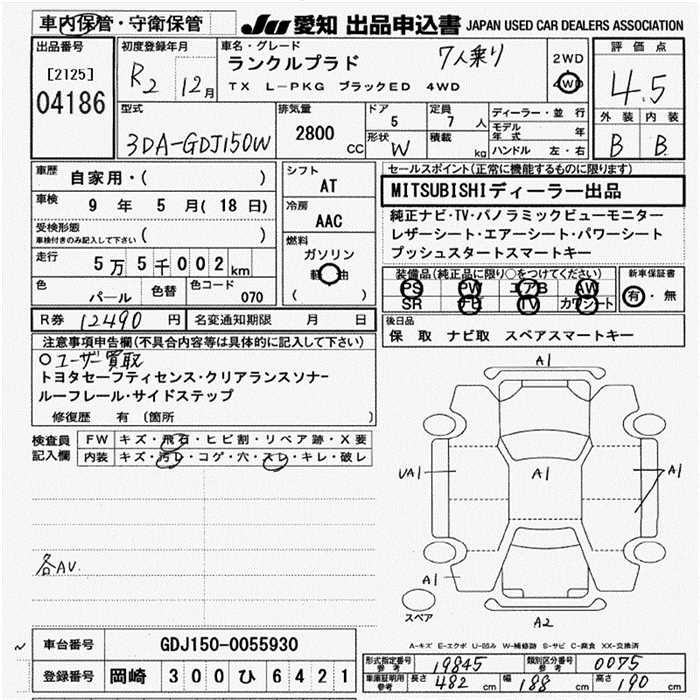 車内保管・守衛保管
JU 愛知 出品申込書 JAPAN USED CAR DEALERS ASSOCIATION
出品番号
[2125]
04186
初度登録年月
R2 12月
車名・グレード
7人乗り
ランクルプラド
TX L-PKG ブラックED 4WD
2WD
4WD
評価点
4.5
外装 内装
B B
型式
3DA-GDJ150W
排気量
2800 CC
ドア
5
定員
7 人
形状
W
積載
kg
ディーラー・並行
モデル年式 年
ハンドル 左・右
車歴
自家用・( )
車検
9 年 5 月(18日)
受検形態
車検付きのみ記入して下さい ( )
走行
5万5千002km
色
パール
色替
色コード
070
シフト
AT
冷房
AAC
燃料
ガソリン
軽油
( )
セールスポイント(正常に機能するものに限ります)
MITSUBISHIディーラー出品
純正ナビ・TV・パノラミックビューモニター
レザーシート・エアーシート・パワーシート
プッシュスタートスマートキー
装備品(純正品に限り○をつけてください)
PS PW エアB AW
SR TV カワシート
新車保証書
有・無
R券 12490 円
名変通知期限 月 日
後日品
保 取 ナビ取 スペアスマートキー
注意事項申告欄(不具合内容等は具体的に記入して下さい)
○ユーザー買取
トヨタセーフティセンス・クリアランスソナー
ルーフレール・サイドステップ
修復歴 有 (箇所 )
検査員記入欄
FW キズ・飛石・ヒビ割・リペア跡・X要
内装 キズ・汚レ・コゲ・穴・スレ・キレ・破レ
各AU.
A1
UA1
A1
A1
A1
スペア
A2
A-キズ E-エクボ U-凹み W-補修跡 S-サビ C-腐食 XX-交換済
車台番号 GDJ150-0055930
登録番号 岡崎 300 ひ 6421
形式指定番号 参考 19845
類別区分番号 参考 0075
車庫証明用 参考 長さ 482 cm 幅 188 cm 高さ 190 cm